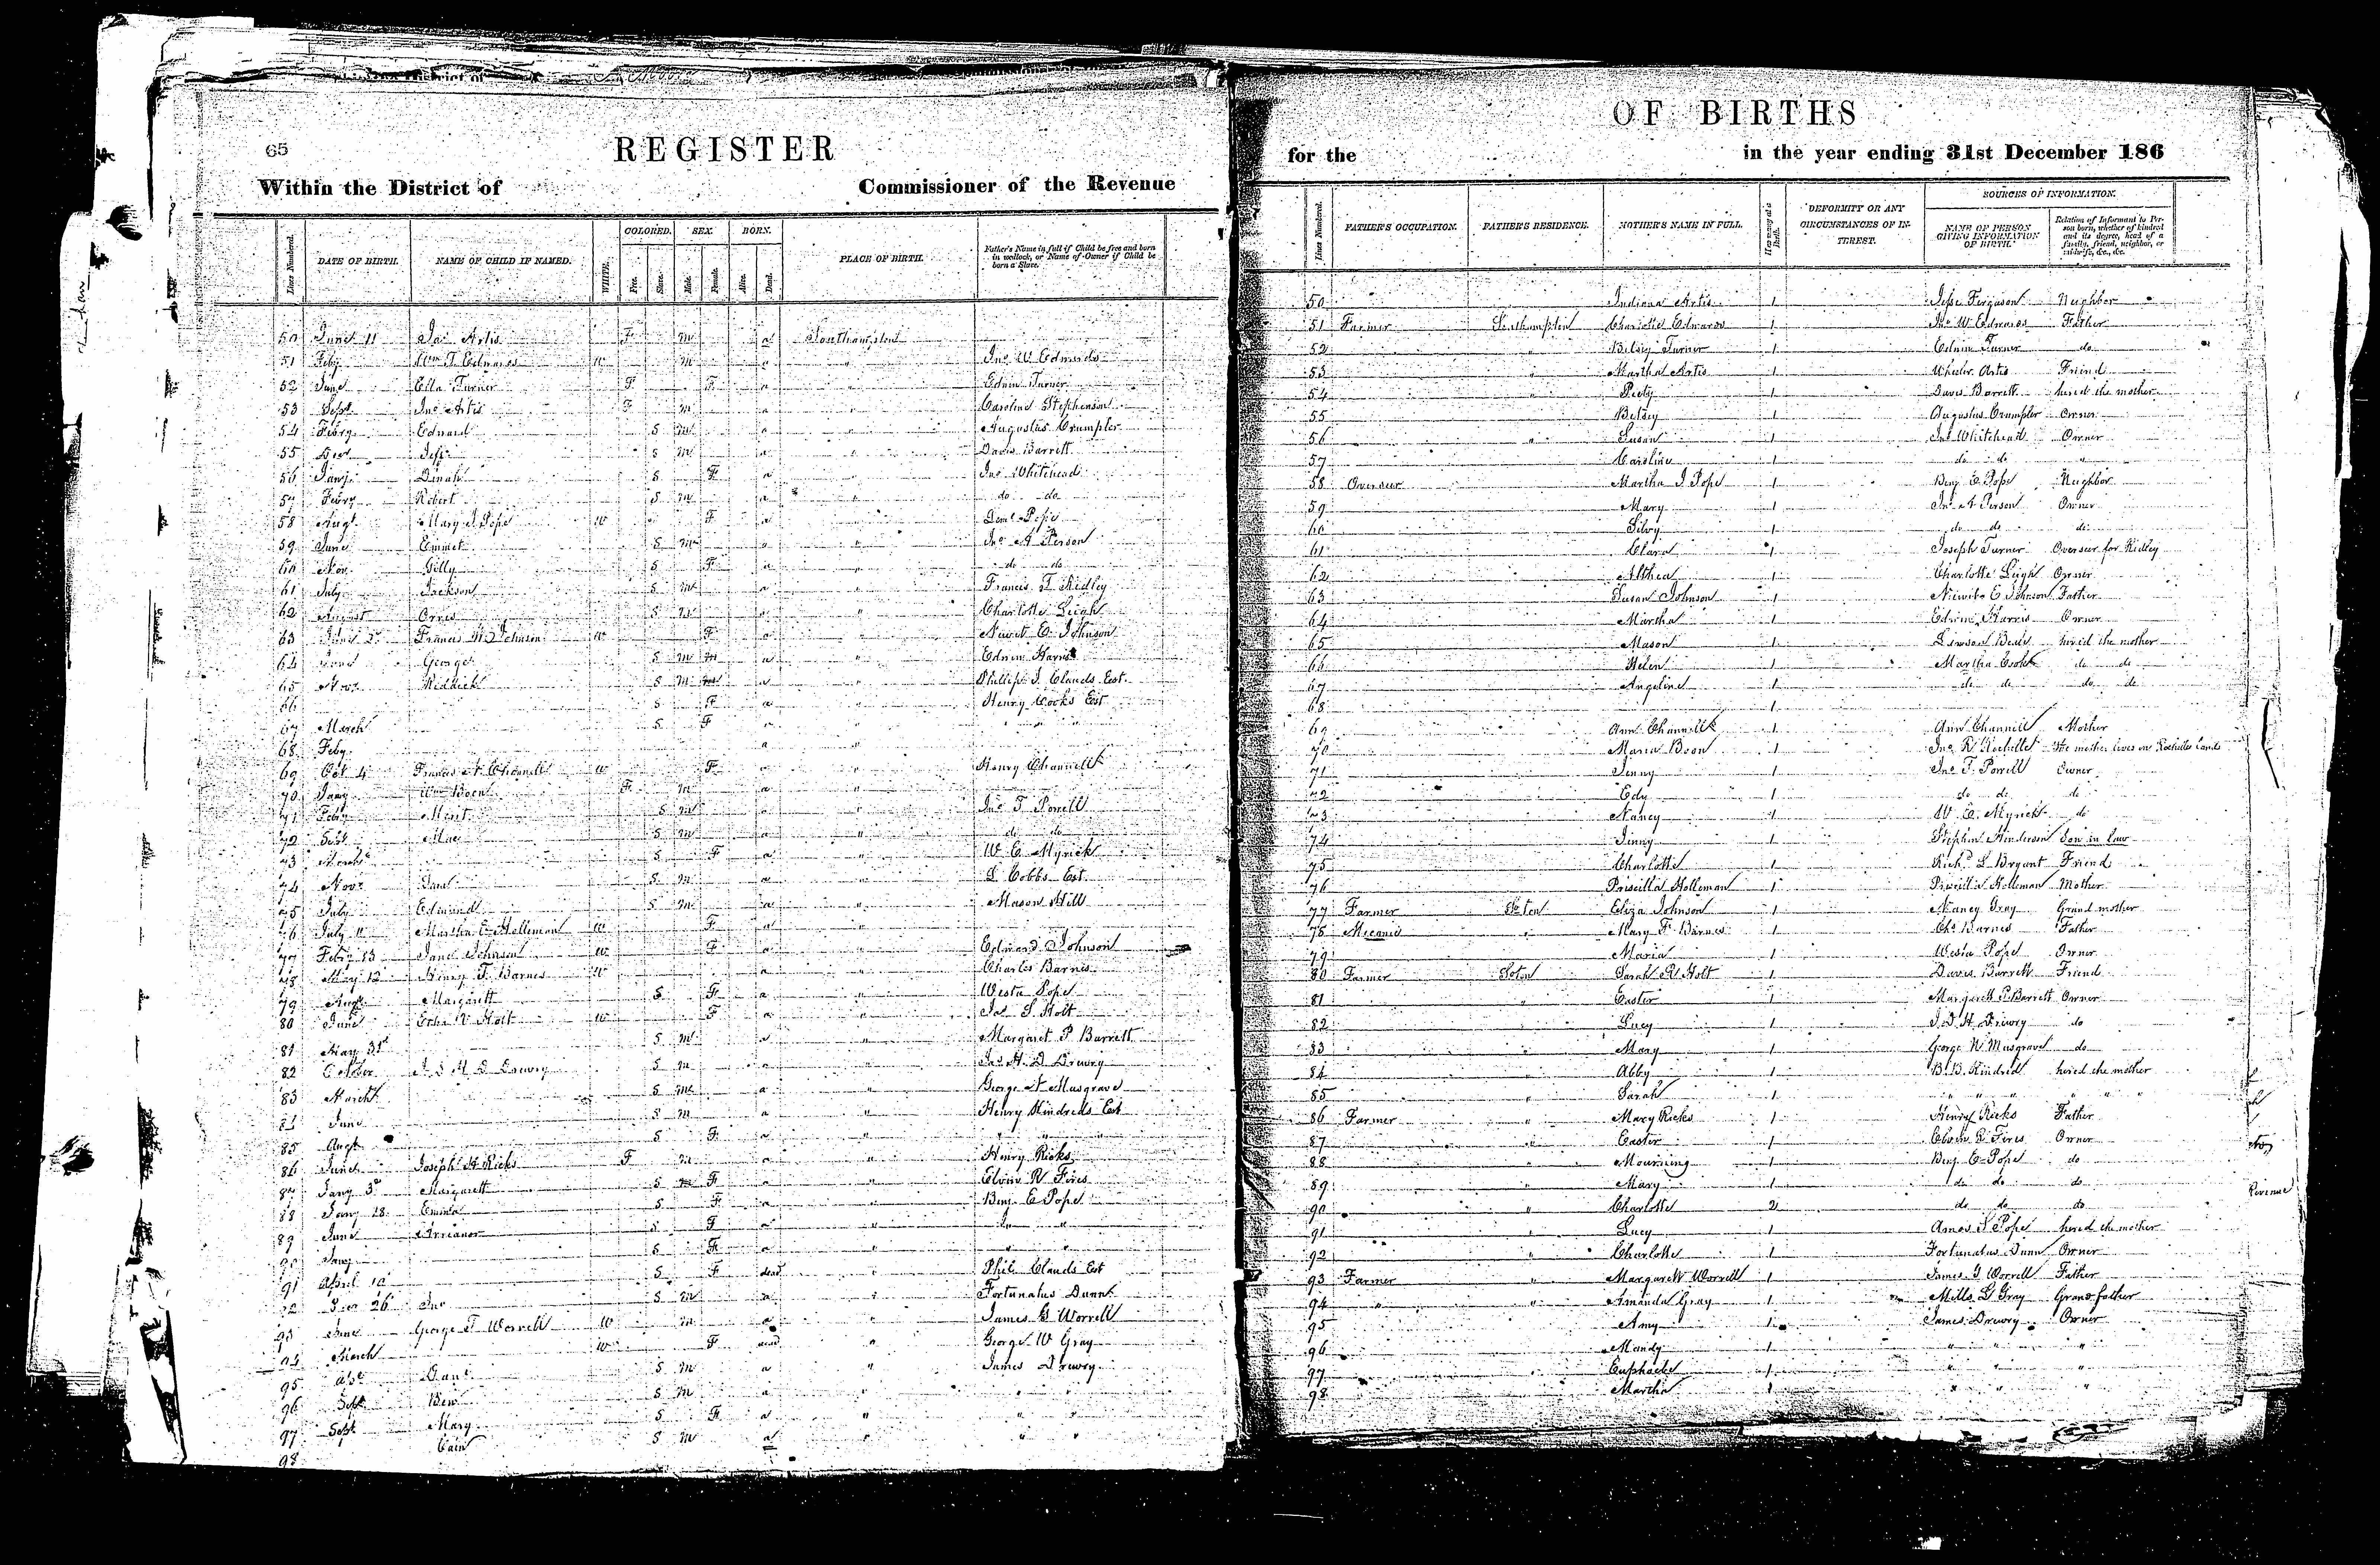 65
REGISTER
Within the District of Commissioner of the Revenue
Lines Numbered. DATE OF BIRTH. NAME OF CHILD IF NAMED. WHITE. COLORED. Free. Slave. SEX. Male. Female. BORN. Alive. Dead. PLACE OF BIRTH. Father's Name in full if Child be free and born in wedlock, or Name of Owner if Child be born a Slave.
50 June 11 Jas Artis F m a Southampton
51 Feby Wm T Edwards w m a " Jno W Edwards
52 June Ella Turner F F a " Edwin Turner
53 Sept Jno Artis F m a " Caroline Stephenson
54 Febry Edward S m a " Augustus Crumpler
55 S m a " Davis Barrett
56 Jany Dinah S F a " Jno Whitehead
57 Febry Robert S m a " do do
58 Augt Mary J Pope w F a " Pope
59 June Emmet S m a " Jno A Person
60 Nov Gilly S F a " do do
61 July Jackson S m a " Francis T Ridley
62 August S m a " Charlotte Leigh
63 Francis Johnson w F a " Newit E Johnson
64 June George S m m a " Edwin Harris
65 Nov Reddick S m a " Phillip J Clauds Est
66 S F a " Henry Cooks Est
67 March S F a " " "
68 Feby a "
69 Oct 4 Francis A Channell w F a " Henry Channell
70 Jany Wm Boon F m a "
71 Feby S m a " Jno T Porrell
72 S m a " do do
73 March S F a " W E Myrick
74 Nov S m a " Cobbs Est
75 July Edmund S m a " Mason Hill
76 July 11 Martha E Holleman w F a "
77 Feby 13 Jane Johnson w F a " Edward Johnson
78 May 12 Henry T Barnes w a " Charles Barnes
79 Augt Margarett S F a " Westa Pope
80 June Holt w F a " Jas S Holt
81 May 31st S m a " Margaret P Barrett
82 October Drewry S m a " Jno H D Drewry
83 March S m a " George N Musgrave
84 June S m a " Henry Kindreds Est
85 Augt S F a " " "
86 June Joseph H Ricks F m a " Henry Ricks
87 Jany 3d Margarett S F a " Elvin R Fires
88 Jany 18 Emma S F a " Benj E Pope
89 June S F a " " "
90 Jany S F a " " "
91 April 10 S F dead " Phil Clauds Est
92 26 Jno S m a " Fortunatus Dunn
93 June George T Worrell W m a " James G Worrell
94 March w F dead " George W Gray
95 S m a " James Drewry
96 Sept Ben S m a " " "
97 Sept Mary S F a " " "
98 Cain S m a " " "
OF BIRTHS
for the in the year ending 31st December 186
Lines Numbered. FATHER'S OCCUPATION. FATHER'S RESIDENCE. MOTHER'S NAME IN FULL. DEFORMITY OR ANY CIRCUMSTANCES OF INTEREST. SOURCES OF INFORMATION. NAME OF PERSON GIVING INFORMATION OF BIRTH. Relation of Informant to Person born, whether of kindred and its degree, head of a family, friend, neighbor, or midwife, &c., &c.
50 Indiana Artis 1 Jesse Ferguson Neighbor
51 Farmer Southampton Charlotte Edwards 1 Jno W Edwards Father
52 " Betsy Turner 1 Edwin Turner do
53 " Martha Artis 1 Wheeler Artis Friend
54 " Patty 1 Davis Barrett hired the mother
55 Betsey 1 Augustus Crumpler Owner
56 " Susan 1 Jno Whitehead Owner
57 Caroline 1 do do "
58 Overseer Martha J Pope 1 Benj E Pope Neighbor
59 Mary 1 Jno A Person Owner
60 Silvy 1 do do do
61 Clara 1 Joseph Turner Overseer for Ridley
62 Althea 1 Charlotte Leigh Owner
63 Susan Johnson 1 Newit E Johnson Father
64 Martha 1 Edwin Harris Owner
65 Mason 1 Lawson Beale hired the mother
66 Helen 1 Martha Cook do do
67 Angeline 1 do do do do
68 1
69 Ann Channell 1 Ann Channell Mother
70 Maria Boon 1 Jno R Rochelle The mother lives on Rochelles Land
71 Jenny 1 Jno T Porrell Owner
72 Edy 1 do do do
73 Nancy 1 W E Myrick do
74 Jenny 1 Stephen Henderson Son in law
75 Charlotte 1 Richd L Bryant Friend
76 Priscilla Holleman 1 Priscilla Holleman Mother
77 Farmer So ton Eliza Johnson 1 Nancy Gray Grand mother
78 Mecanic " Mary F Barnes 1 Chs Barnes Father
79 Maria 1 Westa Pope Owner
80 Farmer Soton Sarah R Holt 1 Davis Barrett Friend
81 " Easter 1 Margarett P Barrett Owner
82 " Lucy 1 J D H Drewry do
83 " Mary 1 George N Musgrave do
84 " Abby 1 B B Kindred hired the mother
85 " Sarah 1 " " " " "
86 Farmer " Mary Ricks 1 Henry Ricks Father
87 " Easter 1 Elvin R Fires Owner
88 " Mourning 1 Benj E Pope do
89 " Mary 1 do do do
90 " Charlotte 2 do do do
91 " Lucy 1 Amos S Pope hired the mother
92 " Charlotte 1 Fortunatus Dunn Owner
93 Farmer " Margarett Worrell 1 James G Worrell Father
94 " " Amanda Gray 1 Mills G Gray Grandfather
95 Amy 1 James Drewry Owner
96 Mandy 1 " " "
97 1 " " "
98 Martha 1 " " "
Revenue